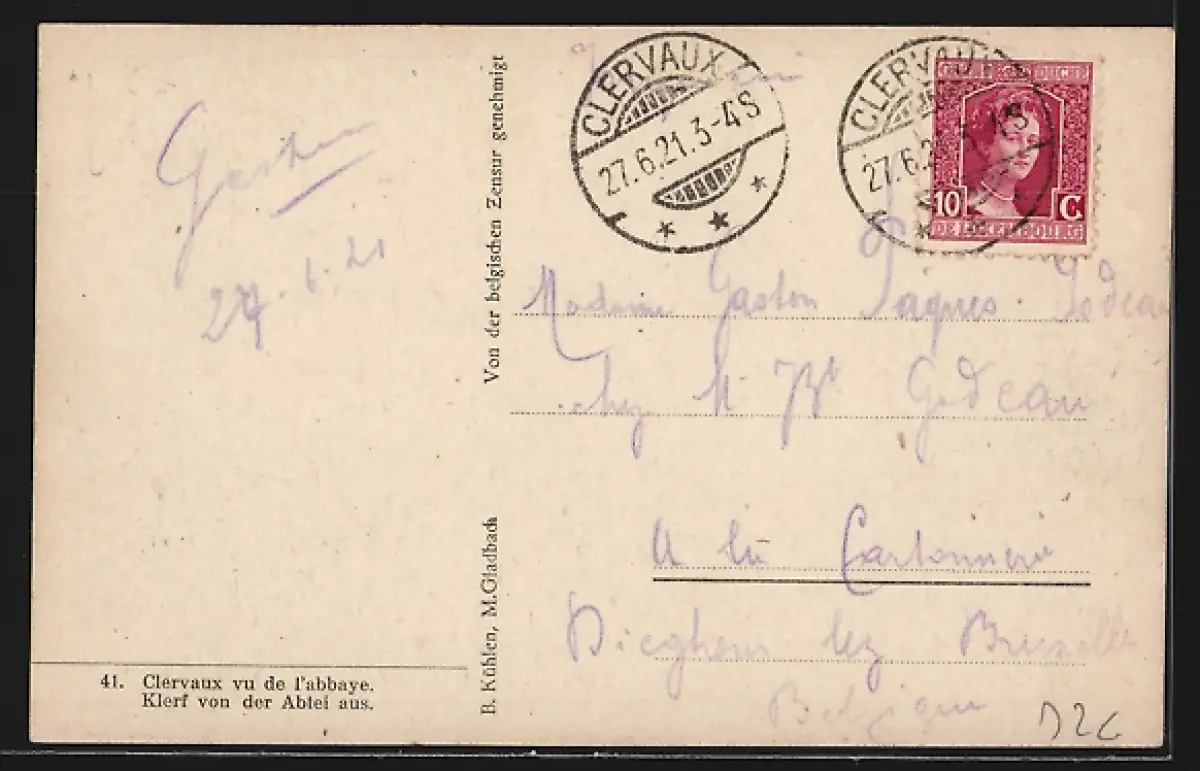 Gaston
27.6.21
41. Clervaux vu de l'abbaye.
Klerf von der Abtei aus.
Von der belgischen Zensur genehmigt
B. Kühlen, M.Gladbach
CLERVAUX
27.6.21.3-4S
CLERVAUX
27.6.21.3-4S
10 C.
DE LUXEMBOURG
Madame Gaston Pâques-Godeau
chez M. Godeau
A la Cartonnerie
Dieghem lez Bruxelles
Belgique